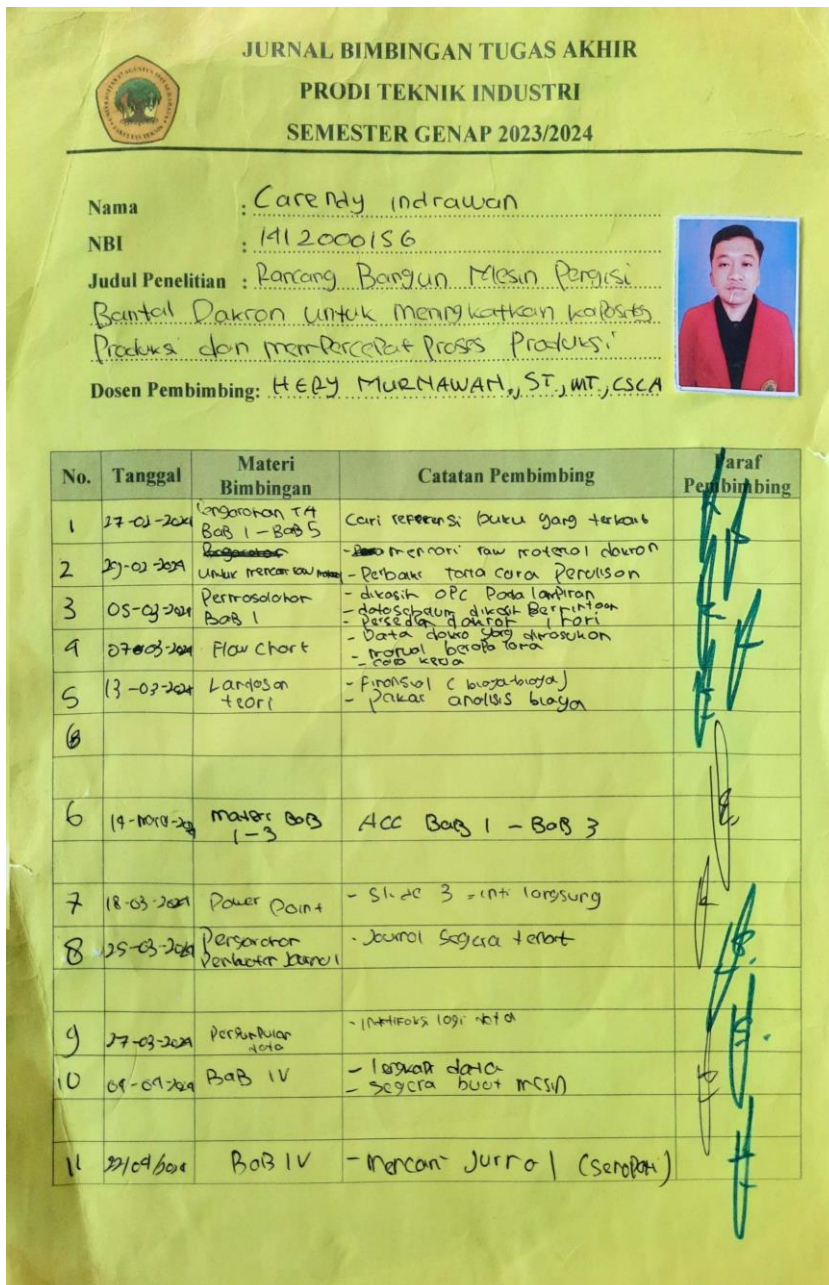 JURNAL BIMBINGAN TUGAS AKHIR
PRODI TEKNIK INDUSTRI
SEMESTER GENAP 2023/2024
Nama : Carendy indrawan
NBI : 1412000156
Judul Penelitian : Rancang Bangun Mesin Pengisi
Bantal Dakron untuk meningkatkan kapasitas
Produksi dan mempercepat proses Produksi
Dosen Pembimbing: HERY MURNAWAN., ST., MT., CSCA
No. Tanggal Materi Bimbingan Catatan Pembimbing Paraf Pembimbing
1 27-02-2024 TA
BAB 1 - BAB 5 Cari referensi buku yang terkait
2 29-02-2024 untuk mencari raw - mencari raw material dakron
- Perbaiki tata cara Penulisan
3 05-03-2024 Permasalahan
BAB 1 - dikasih OPC Pada lampiran
- dikasih
- 1 hari
4 07-03-2024 Flow Chart - Data yang dimasukan
- manual berapa lama
- cara kerja
5 13-03-2024 Landasan
teori - finansial (biaya-biaya)
- pakar analisis biaya
6
6 materi BAB
1-3 ACC BAB 1 - BAB 3
7 18-03-2024 Power Point - Slide 3 = inti langsung
8 25-03-2024 - Journal segera
9 27-03-2024 Pengumpulan
data - lagi data
10 BAB IV - data
- segera buat mesin
11 BAB IV - mencari Jurnal